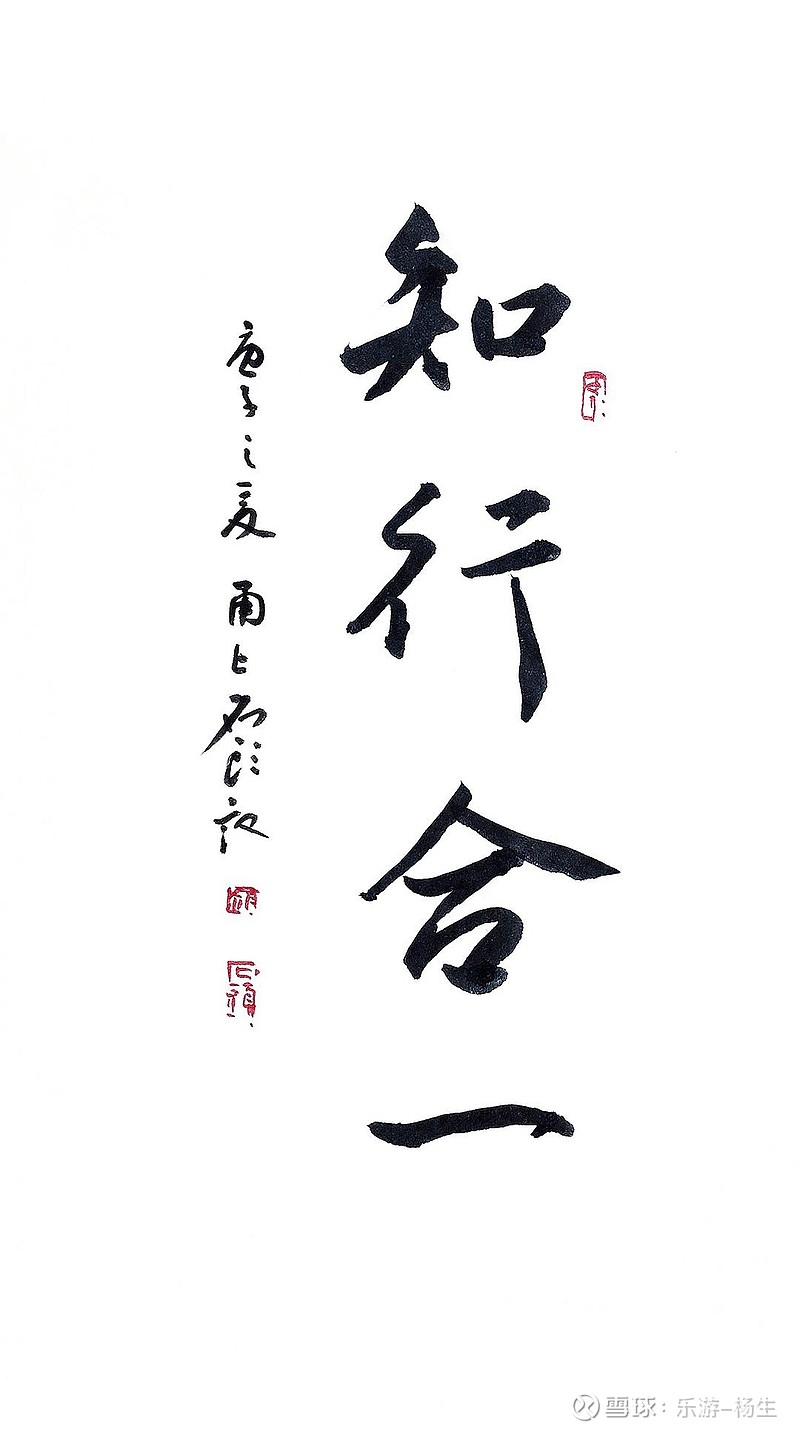 知行合一
庚子之夏 甬上
雪球：乐游-杨生